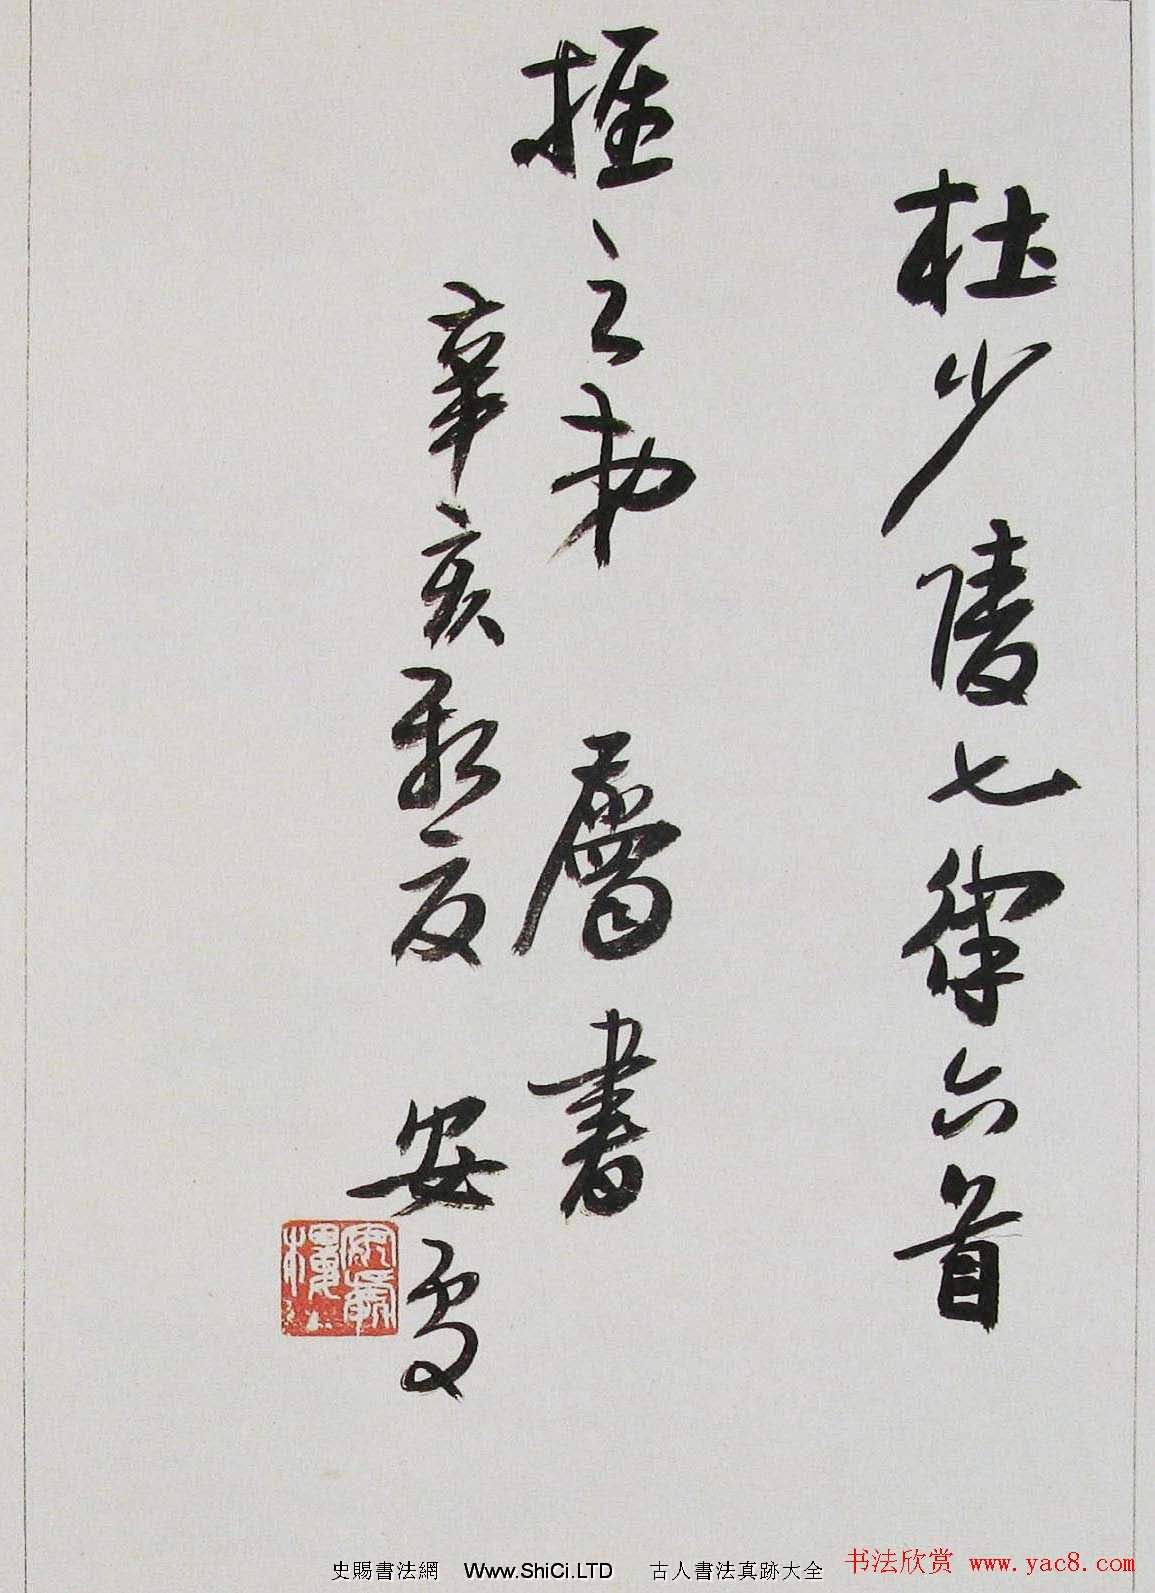 杜少陵七律六首
推之勑 屬書
辛亥新夏 安處
史賜書法網 Www.ShiCi.LTD 古人書法真跡大全
书法欣赏 www.yac8.com